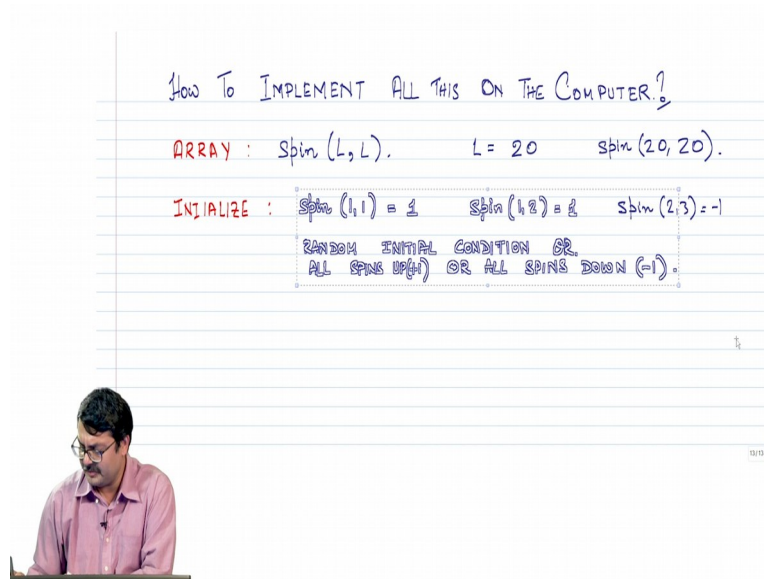 HOW TO IMPLEMENT ALL THIS ON THE COMPUTER.?
ARRAY : Spin (L, L). L = 20 Spin (20, 20).
INIIALIZE : Spin (1,1) = 1 Spin (1,2) = 1 Spin (2,3) = -1
RANDOM INITIAL CONDITION OR.
ALL SPINS UP(+1) OR ALL SPINS DOWN (-1).
13/13